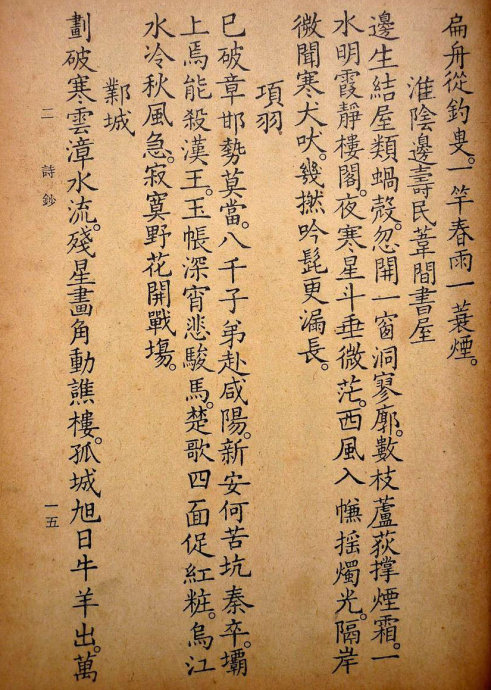 扁舟從釣叟。一竿春雨一蓑煙。
淮陰邊壽民葦間書屋
邊生結屋類蝸殼。忽開一窗洞寥廓。數枝蘆荻撑煙霜。一
水明霞靜樓閣。夜寒星斗垂微茫。西風入㡘摇燭光。隔岸
微聞寒犬吠。幾撚吟髭更漏長。
項羽
已破章邯勢莫當。八千子弟赴咸陽。新安何苦坑秦卒。壩
上焉能殺漢王。玉帳深宵悲駿馬。楚歌四面促紅粧。烏江
水冷秋風急。寂寞野花開戰塲。
鄴城
劃破寒雲漳水流。殘星畫角動譙樓。孤城旭日牛羊出。萬
二 詩鈔 一五